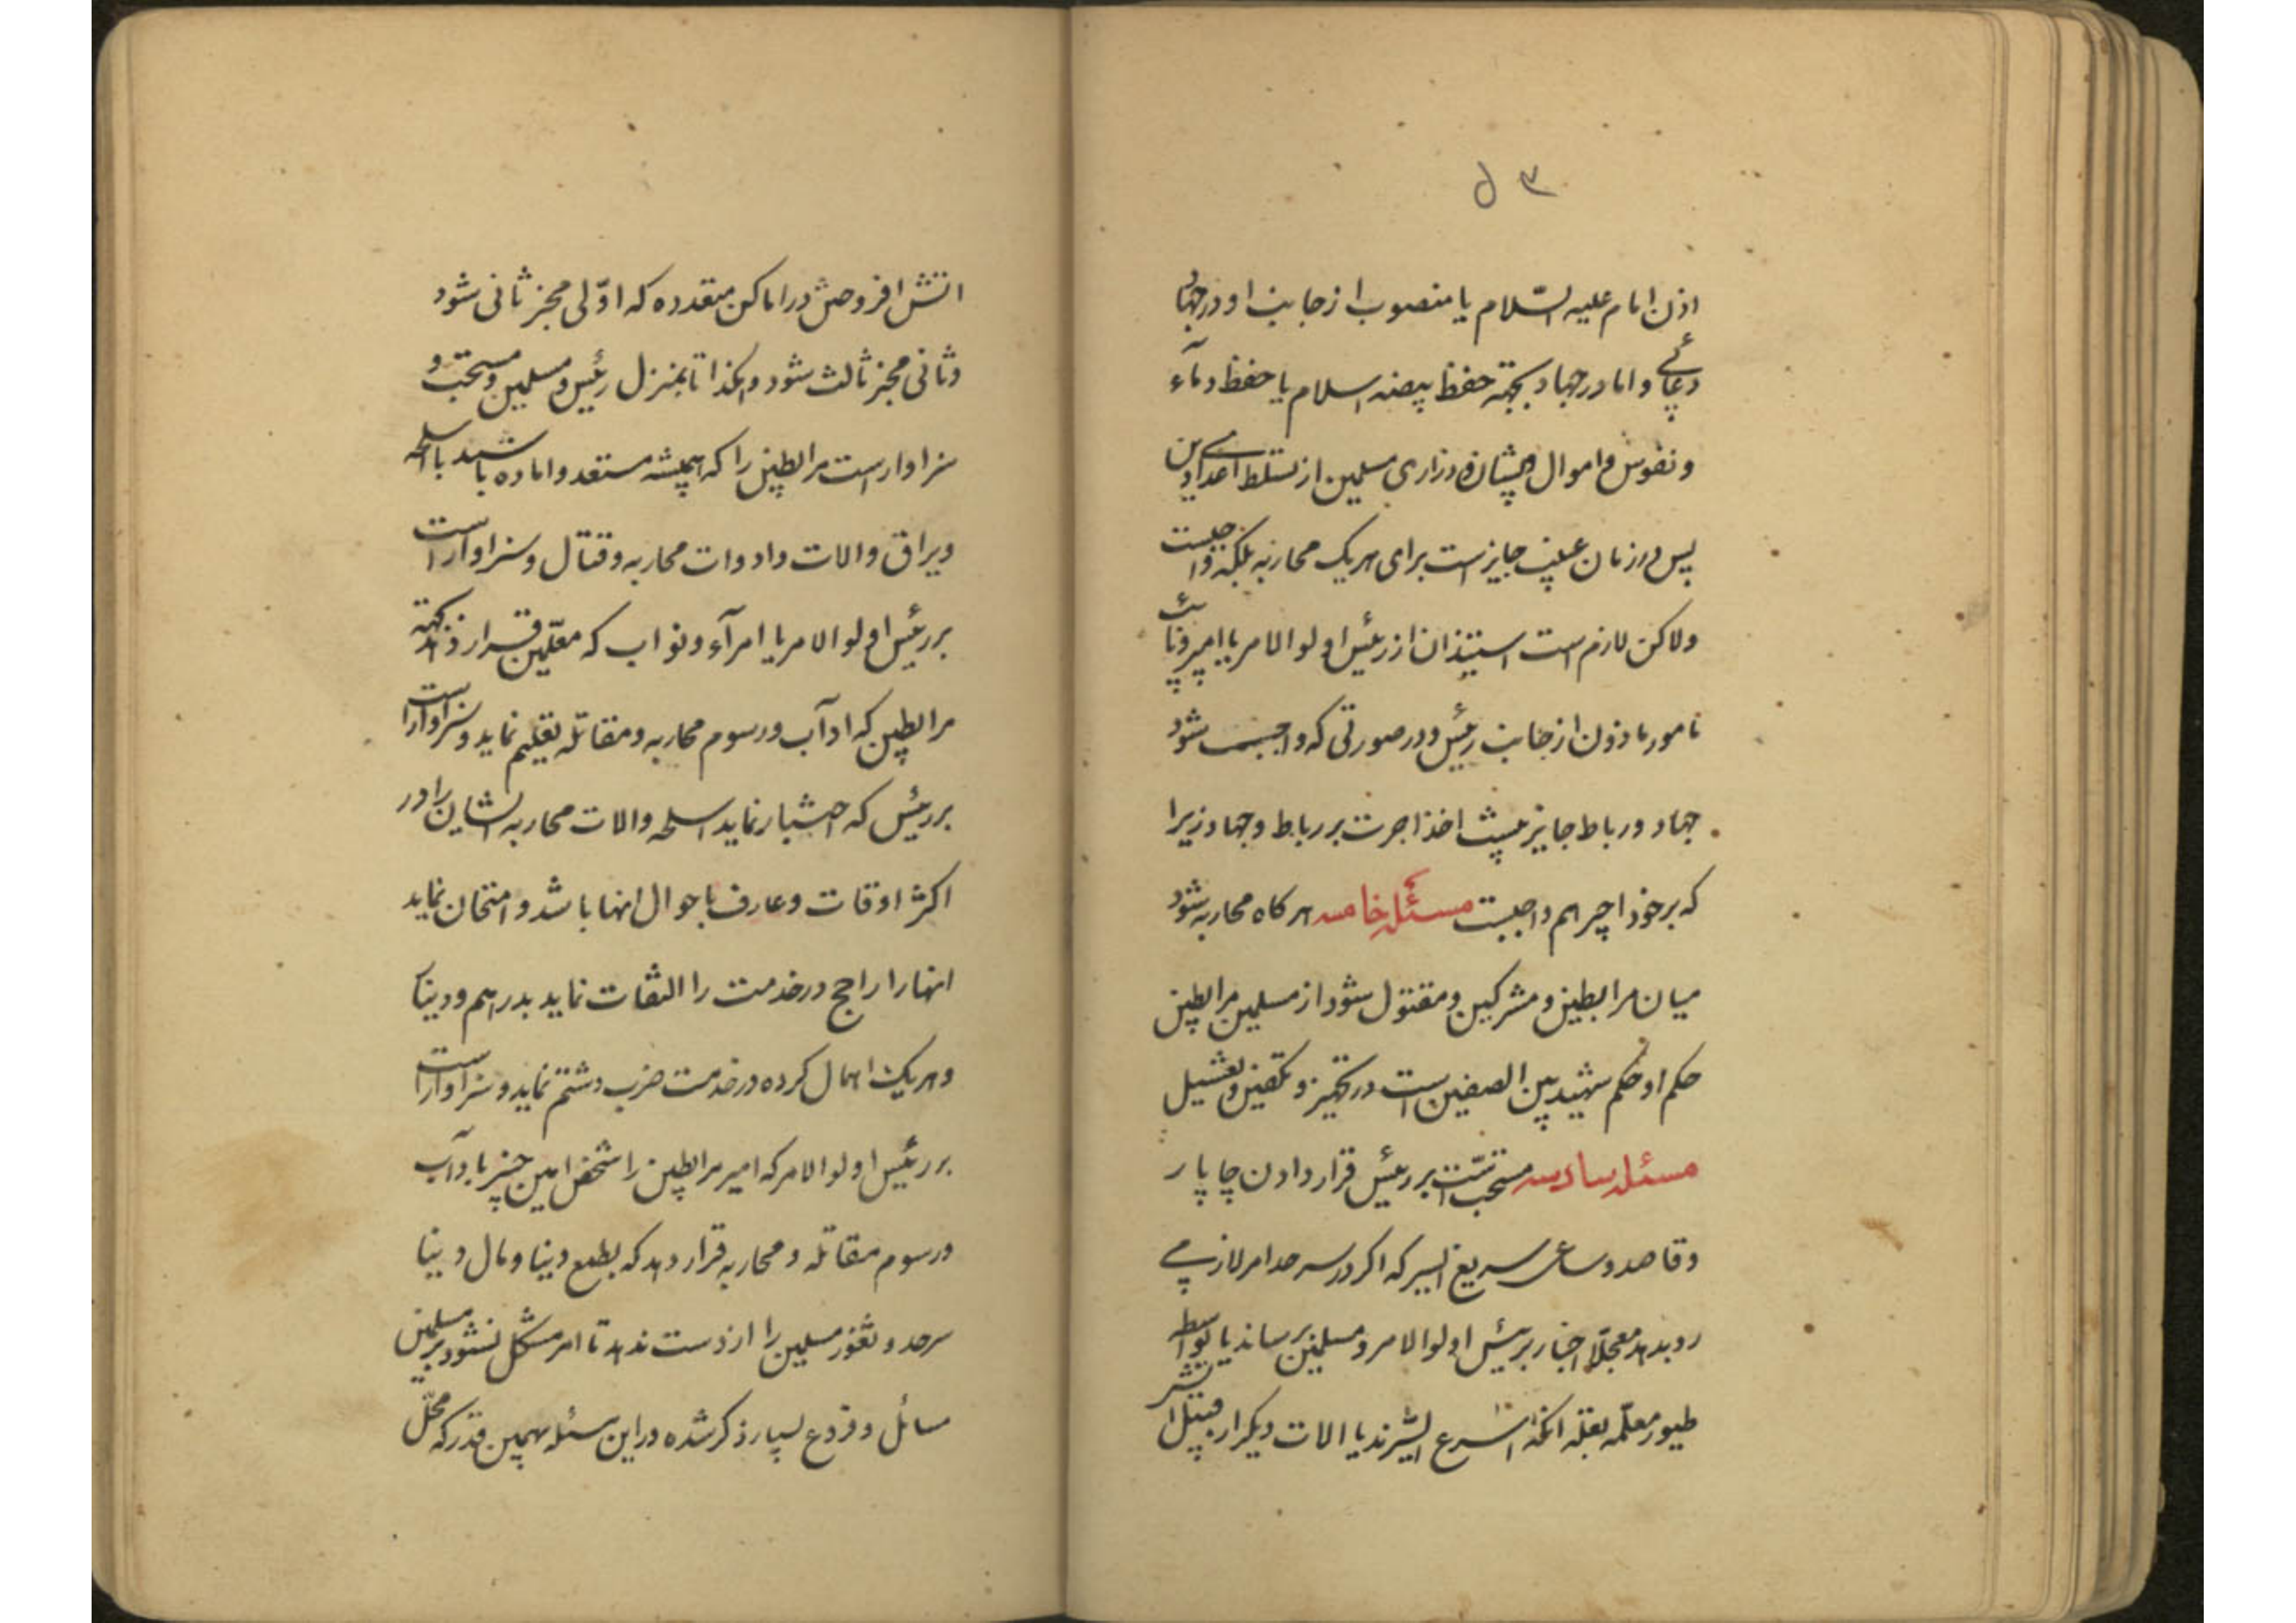 ۵۳
اذن امام علیه السّلام یا منصوب از جانب او در جهاد
دعائے و اما در جهاد بجهة حفظ بیضه اسلام یا حفظ دمآء
و نفوس و اموال ایشان و ذراری مسلمین از تسلط اعدای دین
پس در زمان غیبت جایز است برای هریک محاربه بلکه واجبست
ولاکن لازم است استیذان از رئیس اولو الامر یا امیر و نائب
مامور ماذون از جانب رئیس و در صورتی که واجب شود
جهاد و رباط جایز نیست اخذ اجرت بر رباط و جهاد زیرا
که بر خود اجیر هم واجبست مسئله خامسه هرکاه محاربه شود
میان مرابطین و مشرکین و مقتول شود از مسلمین مرابطین
حکم او حکم شهید بین الصفین است در تجهیز و تکفین و تغسیل
مسئله سادسه مستحب است بر رئیس قرار دادن چاپار
و قاصد و ساعی سریع السیر که اکر در سرحد امر لازمے
رو بدهد معجلّا اخبار برئیس اولو الامر و مسلمین برساند یا بواسطه
طیور معلّمه بعلّه انکه اسرع السّیرند یا الات دیکر از قبیل
اتش افروختن در اماکن متعدده که اوّلی مخبر ثانی شود
و ثانی مخبر ثالث شود و هکذا تا بمنزل رئیس و مسلمین و مستحب و
سزاوار است مرابطین را که همیشه مستعد و اماده باشند با اسلحه
و یراق و الات و ادوات محاربه و قتال و سزاوار است
بر رئیس اولو الامر یا امرآء و نواب که معلّمین قرار دهد بجهة
مرابطین که ادآب و رسوم محاربه و مقاتله تعلیم نماید و سزاوار است
بر رئیس که اختبار نماید اسلحه و الات محاربه ایشان را در
اکثر اوقات و عارف باحوال انها باشد و امتحان نماید
انها را راجح در خدمت را التفات نماید بدراهم و دینار
و هریک اهمال کرده در خدمت ضرب و شتم نماید و سزاوار است
بر رئیس اولو الامر که امیر مرابطین را شخص امین خبیر بادآب
و رسوم مقاتله و محاربه قرار دهد که بطمع دنیا و مال دنیا
سرحد و ثغور مسلمین را از دست ندهد تا امر مشکل نشود بر مسلمین
مسائل و فروع بسیار ذکر شده در این مسئله همین قدر که محلّ